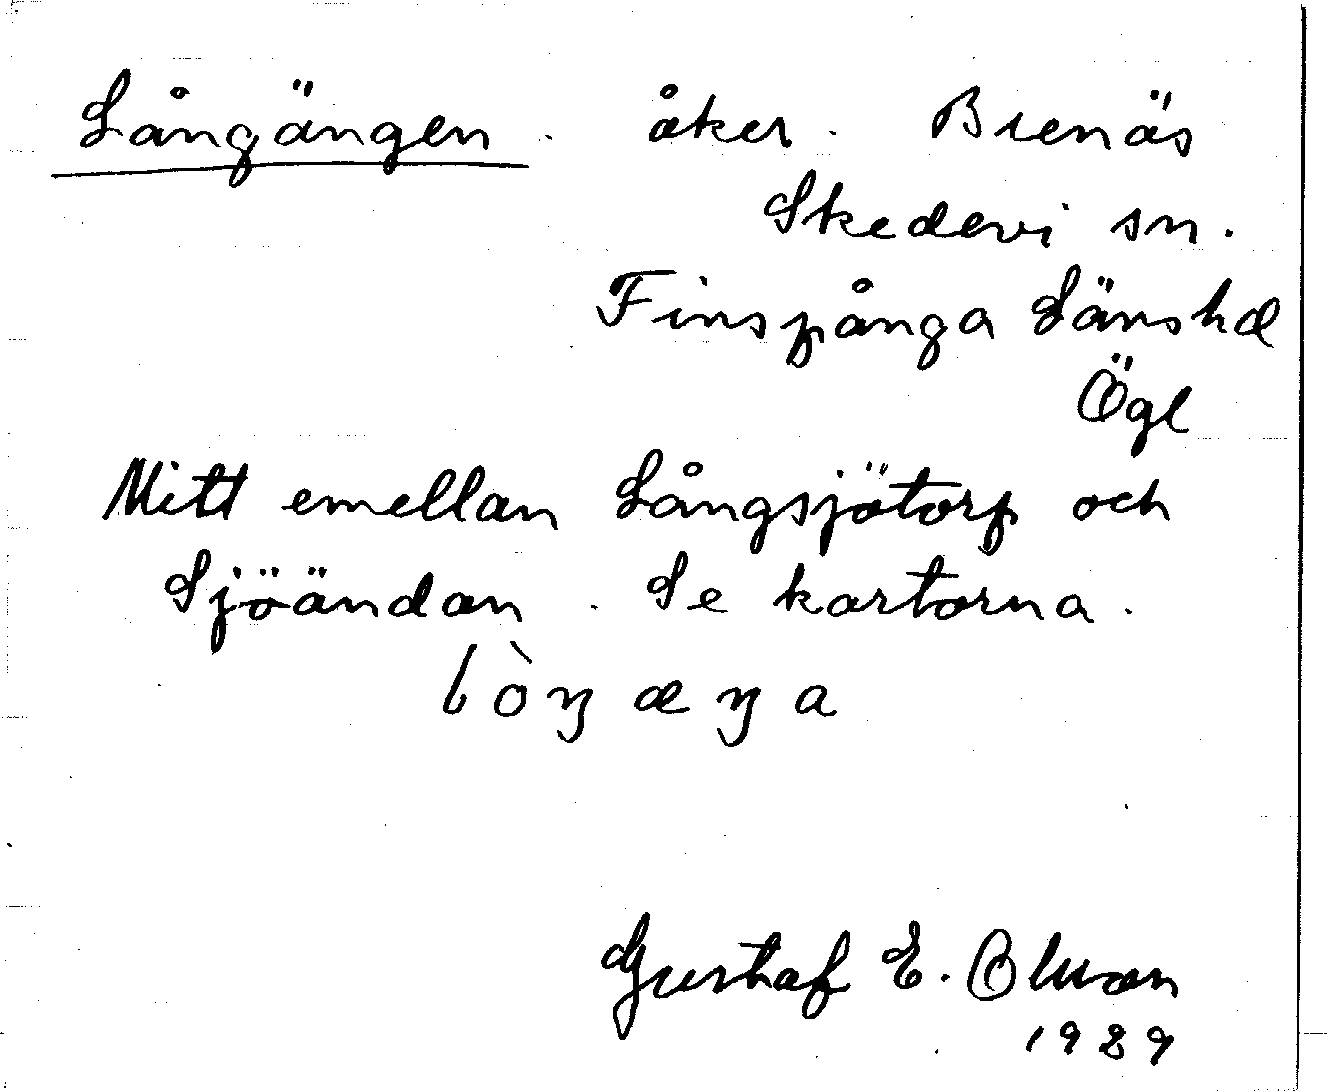 Långängen. åker. Brenäs
Skedevi sn.
Finspånga Länshd
Ögl
Mitt emellan Långsjötorp och
Sjöändan. Se kartorna.
lòŋæŋa
Gustaf E.
1929